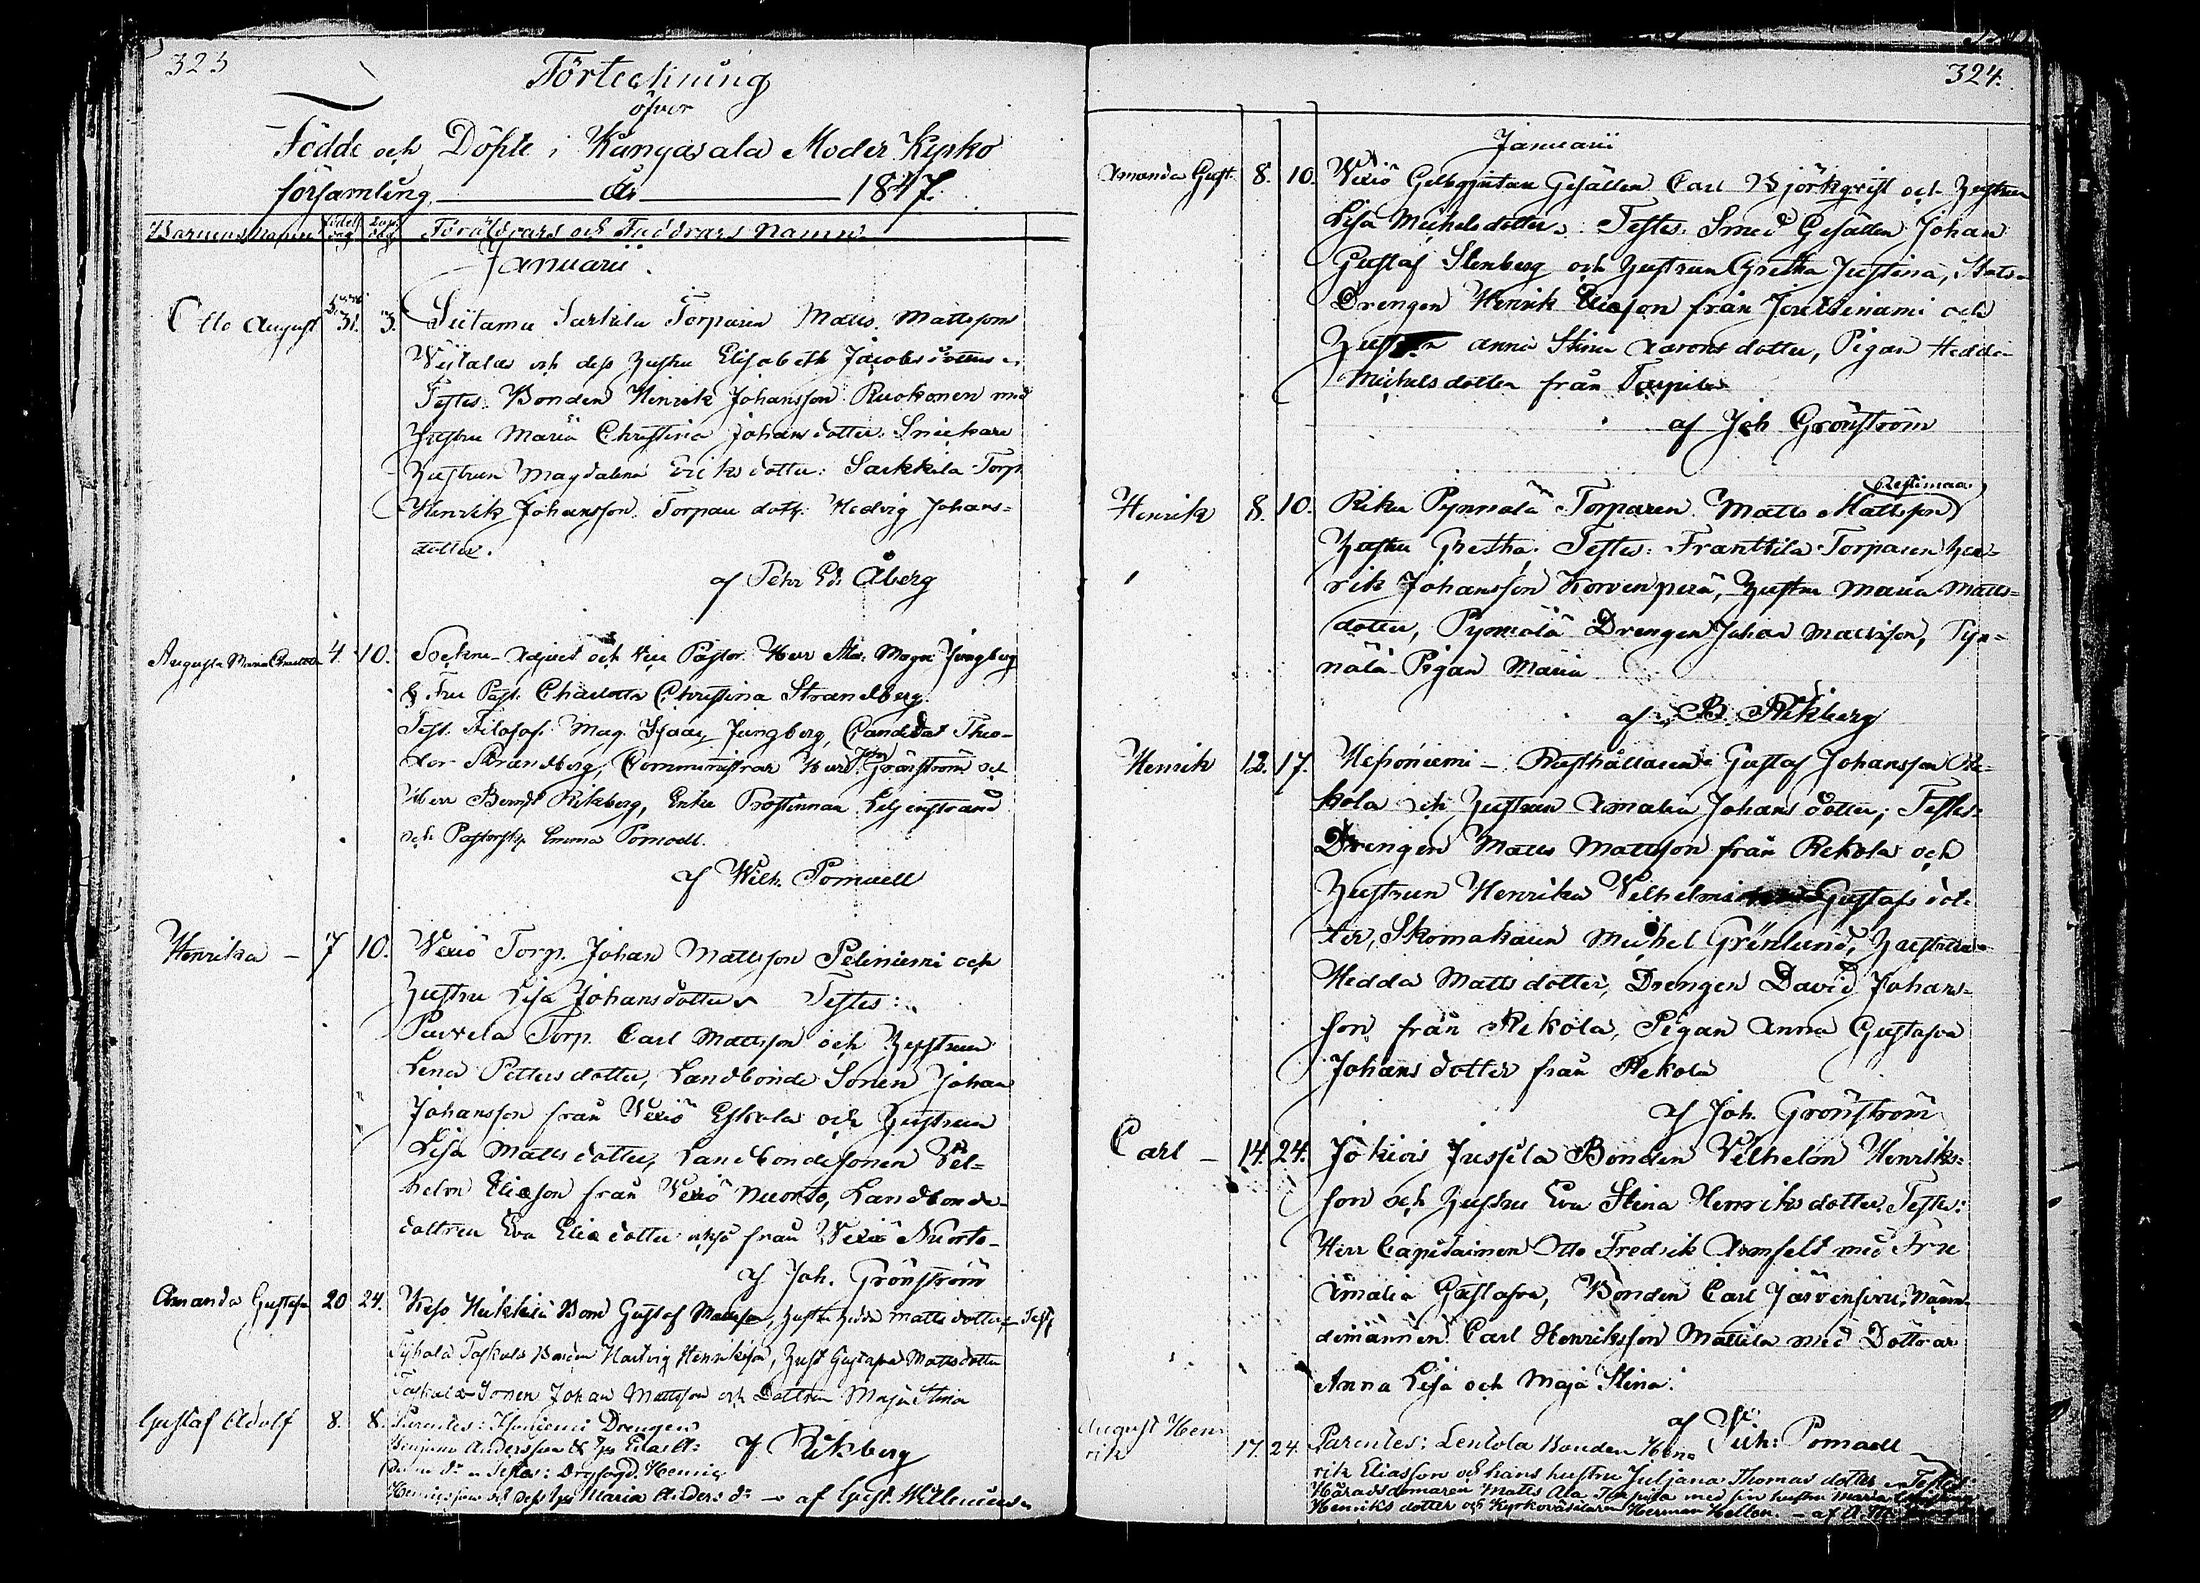 323
Förteckning
öfver
Födde och Döpte i Kangasala Moder Kyrko
församling år 1847.
Barnens namn Födels dag Dop dag Föräldrars och Faddrars Namn.
Januarii.
Otto August 31. 3. Liutamu Sarkila Torparen Matts Mattsson
och dess hustru Elisabeth Jacobsdotter.
Testes: Bonden Henrik Johansson Ruokonen med
Hustru Maria Christina Johansdotter. Snickare
Hustrun Magdalena Eriksdotter: Sarkkila Torp.
Henrik Johansson. Torpare dott. Hedvig Johans-
dotter.
af Pehr Ed. Åberg
Augusta Maria Charlotta 4. 10. Sockne-Adjunct och Vice Pastor Herr Alex. Magn. Jungberg
& Fru Past. Charlotta Christina Strandberg.
Test. Filosof. Mag. Isaac Jungberg, Candidat Theo-
dor Strandberg, Comministrar Herr Joh. Grönström och
Herr Berndt Rikberg, Enke Prostinnan Liljenstrand
och Pastorsk. Emma Pomoell.
af Wilh. Pomoell
Henrika – 7 10. Vexiö Torp. Johan Mattsson Peliniemi och
Hustru Lisa Johansdotter. Testes:
Pavvela Torp. Carl Mattsson och Hustrun
Lena Pettersdotter, Landbonde Sonen Johan
Johansson från Vexiö Eskola och Hustrun
Lisa Mattsdotter, Landbondesonen Vil-
helm Eliasson från Vexiö Nuorto, Landbonde-
dottren Eva Eliædotter också från Vexiö Nuorto.
af Joh. Grönström
Amanda Gustafva 20 24. Heikkilä Bond Gustaf Mattsson, hustr. Hedda Mattsdotter, – Test.
Tykola Taskula Bonden Hartvig Henriksson, Hust. Gustafva Mattsdotter
Taskula Sonen Johan Mattsson och Dottren Maja Stina
af Rikberg
Gustaf Adolf 8. 8. Parentes: Drengen
Benjamin Andersson &
Testes: Henric
Henricsson och dess h. Maria Anders dr – af Gust. Wilenius.
324.
Januarii
Amanda Gust. 8. 10. Vexiö Gelbgjutare Gesällen Carl Björkqvist och Hustrun
Lisa Michelsdotter. Testes. Smed Gesällen Johan
Gustaf Stenberg och Hustrun Gretha Justina, Stats-
Drengen Henrik Eliasson från Joutsiniemi och
Hustrun Anna Stina Aaronsdotter, Pigan Hedda
Michelsdotter från Tarpila
af Joh Grönström
Henrik 8. 10. Riku Pynnälä Torparen Matts Mattsson
Hustru Gretha. Testes: Franttila Torparen Hen-
rik Johansson Korvenperä, Hustru Maria Matts-
dotter, Pynnälä Drengen Johan Mattsson, Pyn-
nälä Pigan Maria
af B. Rikberg
Henrik 12. 17. Heponiemi – Rusthållaren Gustaf Johansson Re-
kola och Hustrun Amalia Johansdotter; Testes:
Drengen Matts Mattsson från Rekola och
Hustrun Henrika Vilhelmina Gustafsdot-
ter, Skomakaren Michel Grönlund, Hustrun
Hedda Mattsdotter, Drengen David Johans-
son från Rekola, Pigan Anna Gustafva
Johansdotter från Rekola
af Joh. Grönström
Carl – 14. 24. Jokiois Jussila Bonden Vilhelm Henriks-
son och Hustru Eva Stina Henriksdotter. Testes:
Herr Capitainen Otto Fredrik Armfelt med Fru
Amalia Gustafva, Bonden Carl Järvensivu, Nämn-
demannen Carl Henriksson Mattila med Döttrar
Anna Lisa och Maja Stina.
af Vilh: Pomoell
August Hen-
rik 17. 24. Parentes: Lentola Bonden Hen-
rik Eliasson och hans hustru Juljana Thomas dotter – Testes:
Häradsdomaren Matts Ala med sin hustru Maria
Henriks dotter och Kyrkoväktaren Herman Hellen. – af